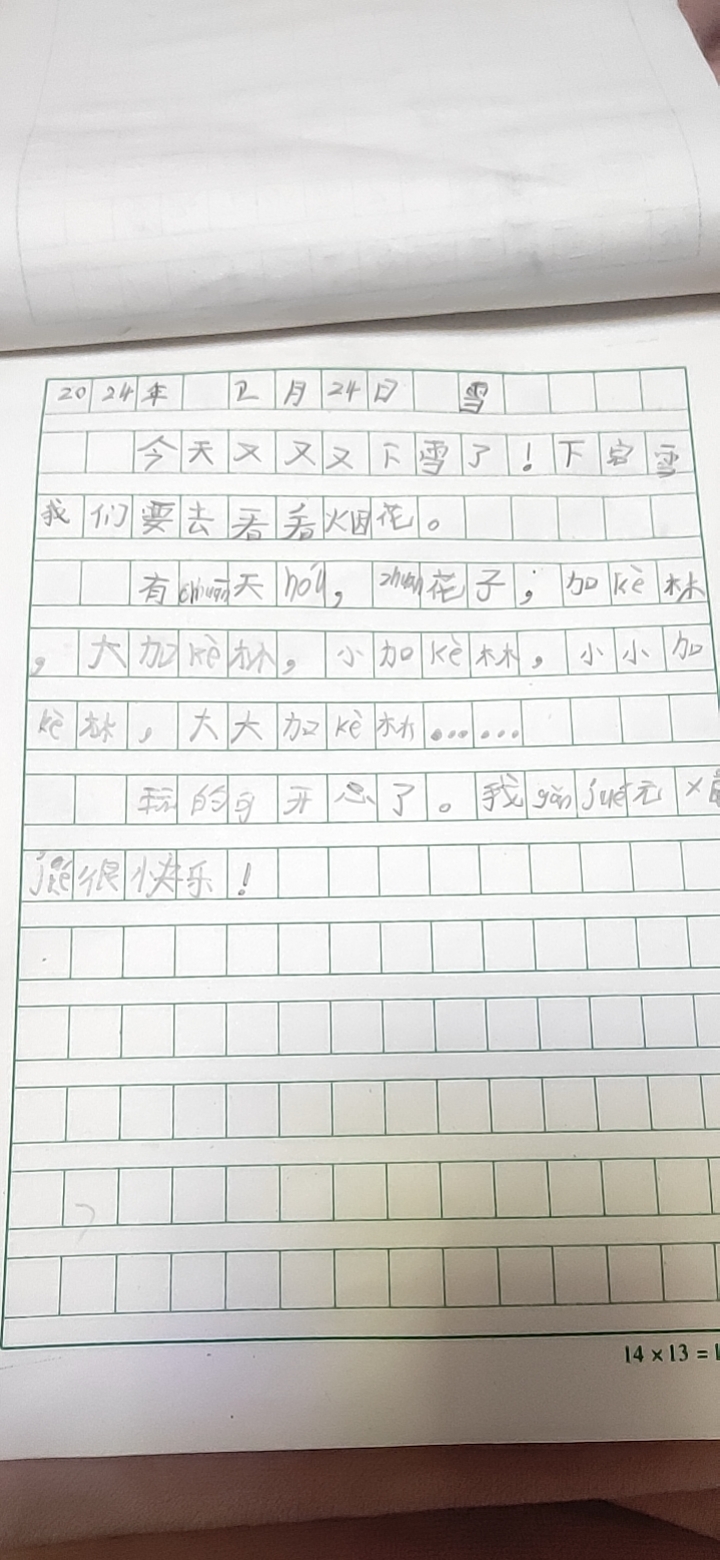 2024年 2月24日 雪
今天又又又下雪了!下完雪
我们要去看看烟花。
有chuān天hóu,zhuàn花子,加kè林
,大加kè林,小加kè林,小小加
kè林,大大加kè林……
玩的可开心了。我gǎn jué元
很快乐!
14×13=1